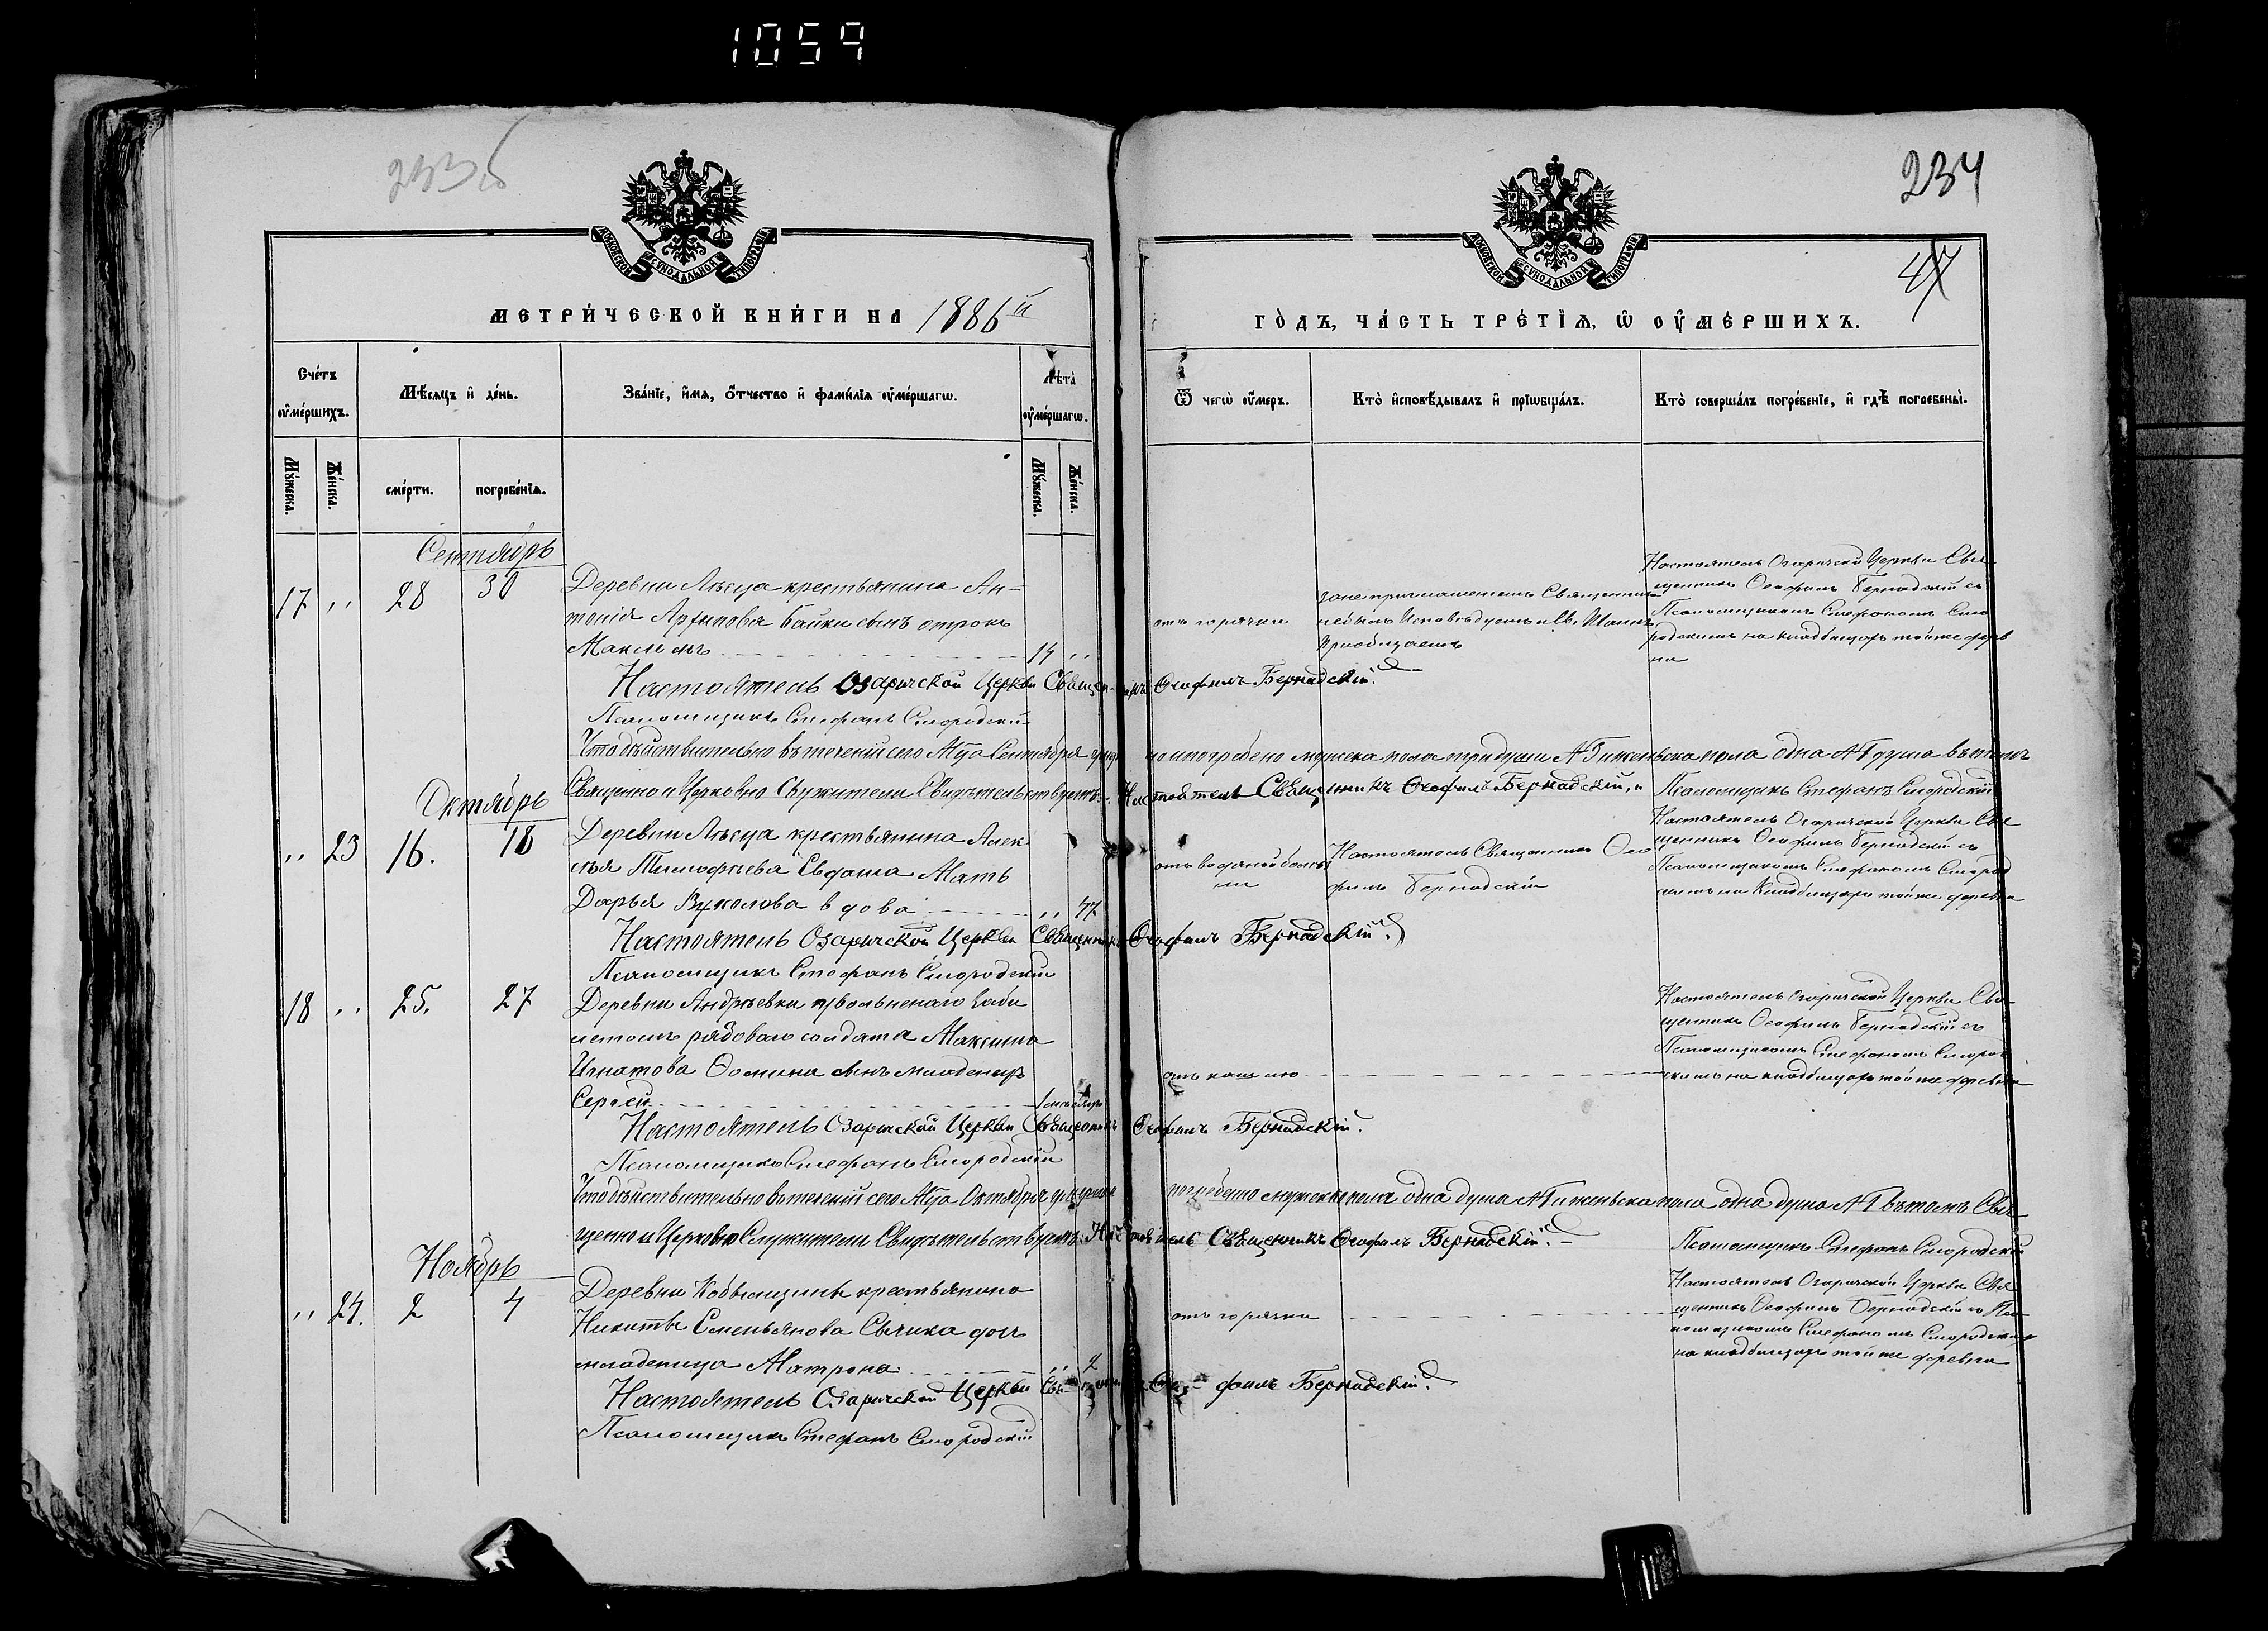 1059
233б
234
47
МОСКОВСКОЙ СѴНОДАЛЬНОЙ ТИПОГРАФІИ
МОСКОВСКОЙ СѴНОДАЛЬНОЙ ТИПОГРАФІИ
МЕТРИ́ЧЕСКОЙ КНИ́ГИ НА 1886й
ГО́ДЪ, ЧА́СТЬ ТРЕ́ТІѦ, Ѡ ОУ҆МЕ́РШИХЪ.
Счéтъ оу҆мéршихъ.
Мѣ́сяцъ и҆ дéнь.
Звáнїе, и҆́мя, ѻ҆́тчество и҆ фамúлїя оу҆мéршагѡ.
Лѣ́та оу҆мéршагѡ.
Мꙋ́жеска.
Жéнска.
смéрти.
погребéнїѧ.
Мꙋ́жеска.
Жéнска.
Ѿ чегѡ̀ оу҆́меръ.
Ктò и҆сповѣ́дывалъ и҆ прїѡбщáлъ.
Ктò совершáлъ погребéнїе, и҆ гдѣ̀ погребены̀.
Сентябрь
17 " 28 30
Деревни Лѣсца крестьянина Ан-
тонія
Байки сынъ отрокъ
14 "
отъ горячки
Священник
Исповѣдуетъ и Св. Таинъ
Приобщаетъ
Настоятель Озаричской Церкви Свя
щенникъ Ѳеофилъ Бернадскій съ
Псаломщикомъ Стефаномъ Смо
родскимъ на кладбищѣ той же дерев
ни
Настоятель Озаричской Церкви Священникъ Ѳеофилъ Бернадскій.
Псаломщикъ Стефанъ Смородскій
Что дѣйствительно въ теченіи сего М-ца Сентября
погребено мужеска пола три души №3 и женьска пола одна №1 душа въ томъ
Священно и Церковно Служители Свидѣтельствуютъ: Настоятель Священникъ Ѳеофилъ Бернадскій, и
Псаломщикъ Стефанъ Смородскій
Октябрь
" 23 16. 18
Деревни Лѣсца крестьянина Алек
сѣя Тимофѣева Мать
Дарья Вуколова вдова " 47
отъ водяной болѣз
ни
Настоятель Священникъ Ѳео
филъ Бернадскій
Настоятель Озаричской Церкви Свя
щенникъ Ѳеофилъ Бернадскій съ
Псаломщикомъ Стефаномъ Смород
скимъ на Кладбищѣ той же деревни
Настоятель Озаричской Церкви Священникъ Ѳеофилъ Бернадскій.
Псаломщикъ Стефанъ Смородскій
18 " 25. 27
Деревни Андрѣевки увольненаго
рядоваго солдата Максима
Игнатова Ѳомина сынъ младенецъ
Сергѣй
отъ кашлю
Настоятель Озаричской Церкви Свя-
щенникъ Ѳеофилъ Бернадскій съ
Псаломщикомъ Стефаномъ Смород
скимъ на кладбищѣ той же деревни
Настоятель Озаричской Церкви Священникъ Ѳеофилъ Бернадскій.
Псаломщикъ Стефанъ Смородскій
Что дѣйствительно въ теченіи сего М-ца Октября
погребено мужеска пола одна душа №1 и женьска пола одна душа №1 въ томъ Свя
щенно и Церковно Служители Свидѣтельствуютъ: Настоятель Священникъ Ѳеофилъ Бернадскій.
Псаломщикъ Стефанъ Смородскій
Ноябрь
" 24. 2 4
Деревни Кобыльщины крестьянина
Никиты Емельянова Сычика дочь
младеница Матрона " 2
отъ горячки
Настоятель Озаричской Церкви Свя
щенникъ Ѳеофилъ Бернадскій съ Пса
ломщикомъ Стефаномъ Смородскимъ
на кладбищѣ той же деревни
Настоятель Озаричской Церкви Священникъ Ѳеофилъ Бернадскій.
Псаломщикъ Стефанъ Смородскій